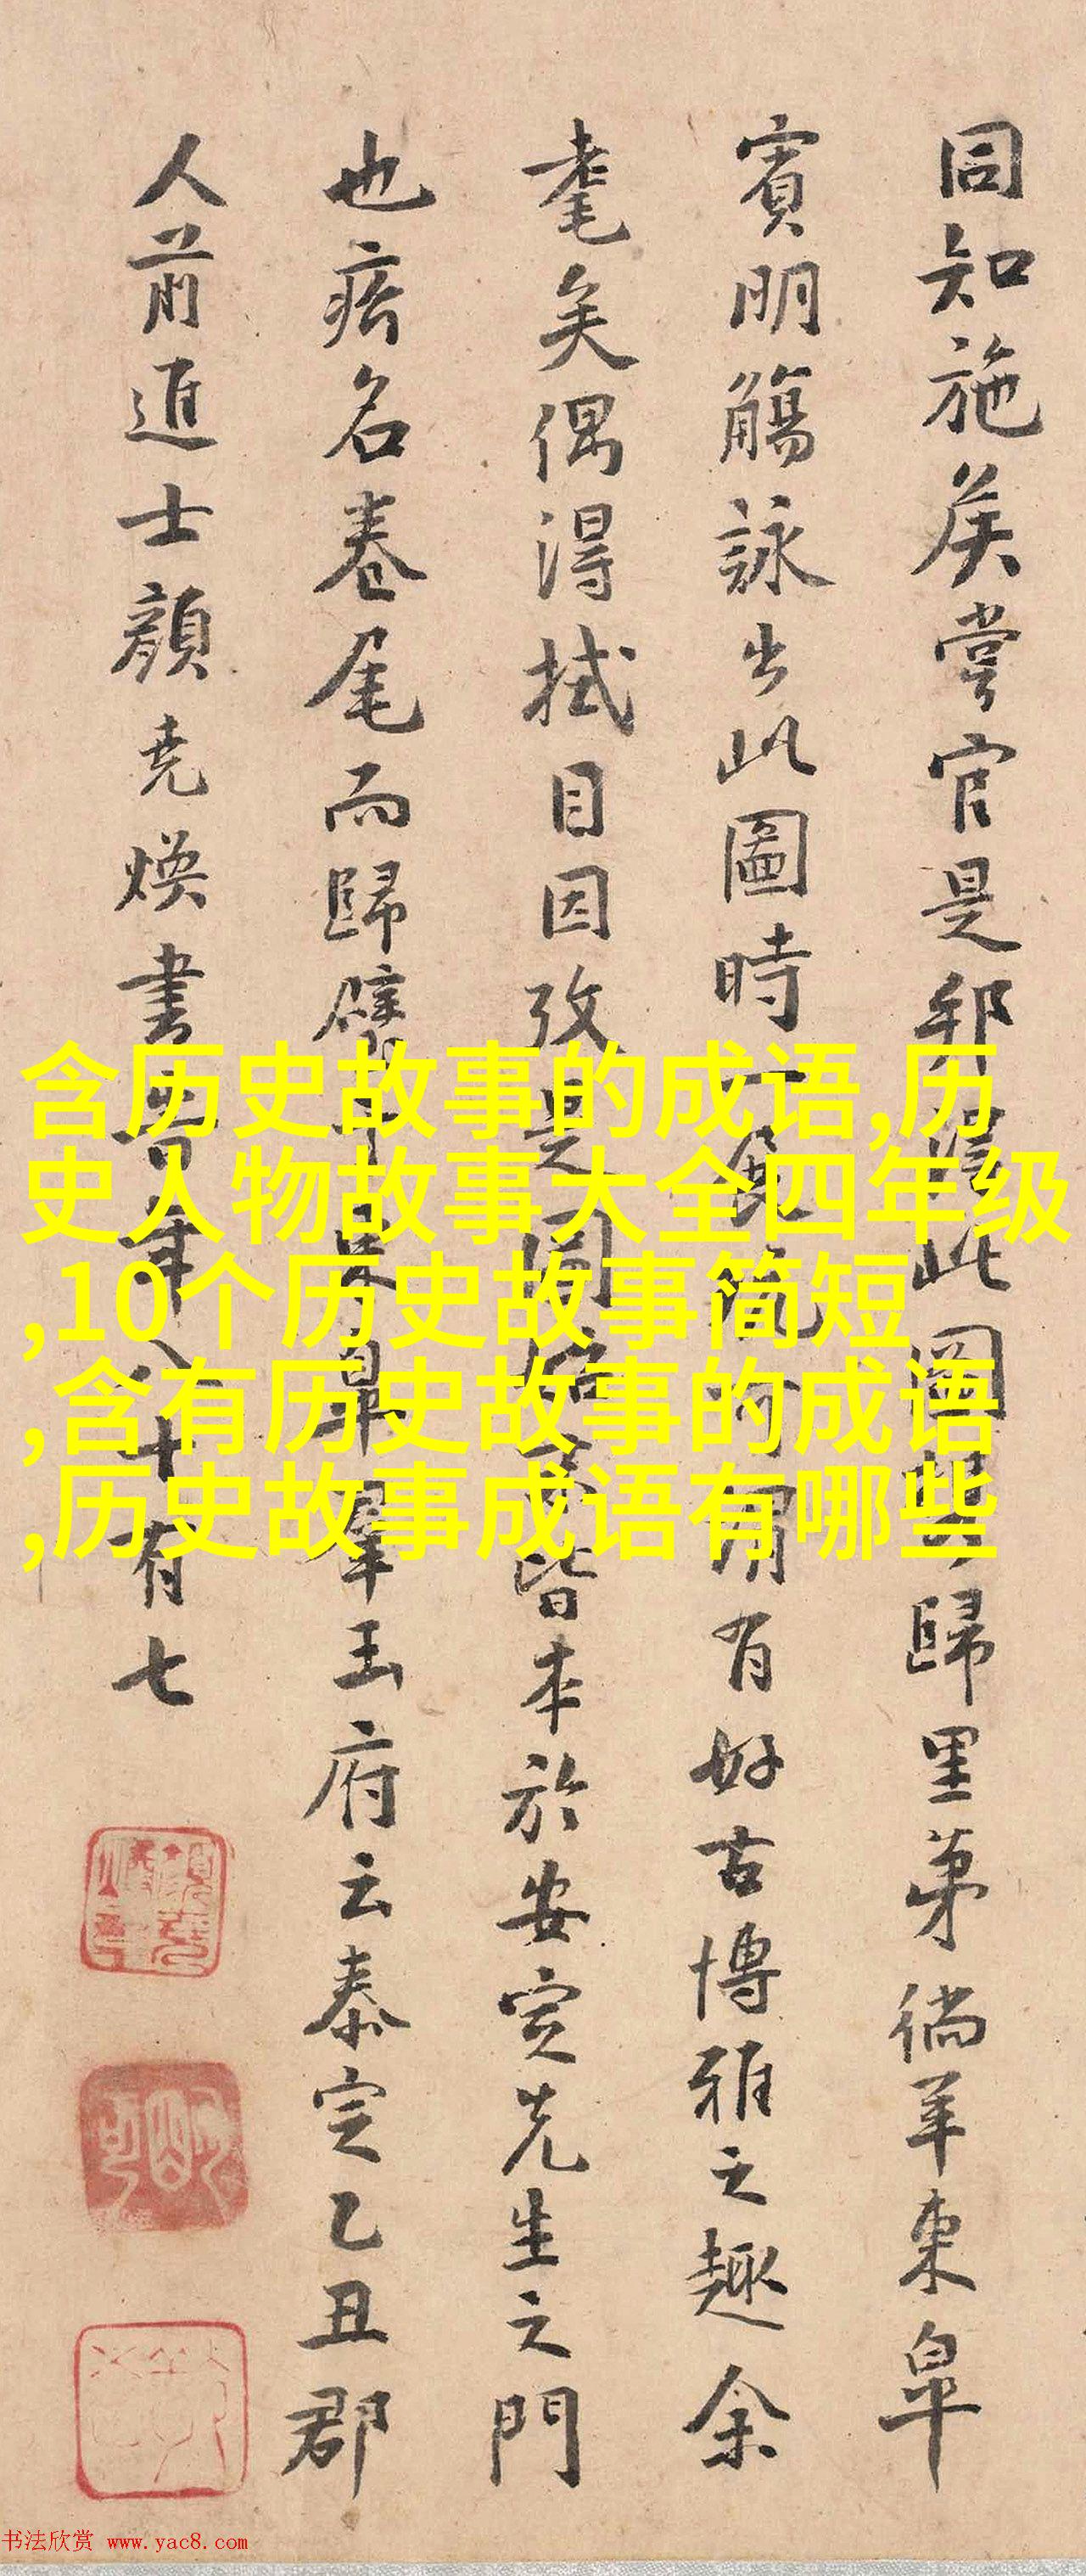 同知施侯嘗官是邦得此圖暨歸里第徜羊東皐
賓明觴詠出此圖時一展玩可謂有好古博雅之趣余
耄矣偶得拭目因攷是圖皆本於安定先生之門
也瘩名卷尾而歸璧羣玉府云泰定乙丑郡
人前進士顏堯煥書時年八十有七
含历史故事的成语,历
史人物故事大全四年级
,10个历史故事简短
,含有历史故事的成语
,历史故事成语有哪些
书法欣赏 www.yac8.com